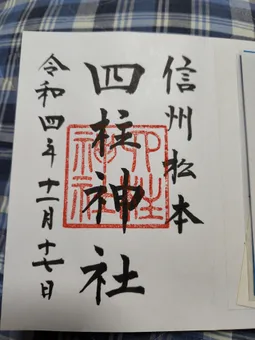 信州松本
四柱神社
四柱神社
令和四年十一月十七日